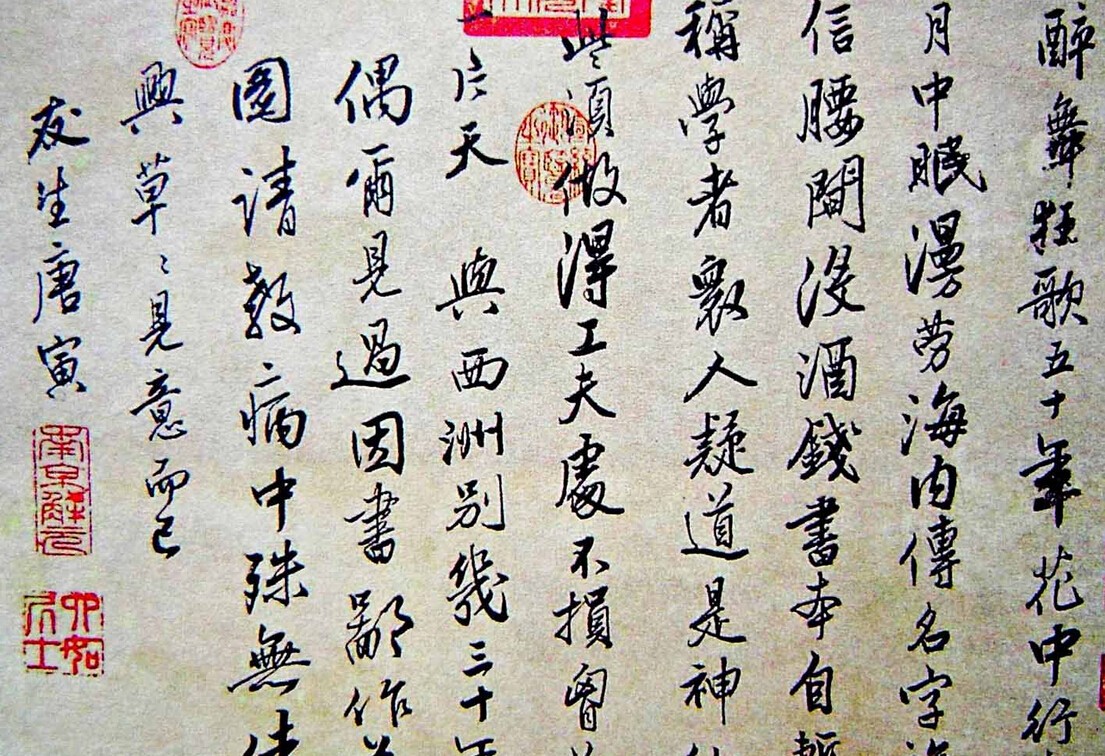 醉舞狂歌五十年花中行
月中眠漫劳海内傳名字
信腰間没酒錢書本自
稱學者衆人疑道是神
些須做得工夫處不損胷
一片天 與西洲別幾三十年
偶爾見過因書鄙作
圖請教〻病中殊無佳
興草〻見意而已
友生唐寅
南京解元
六如居士